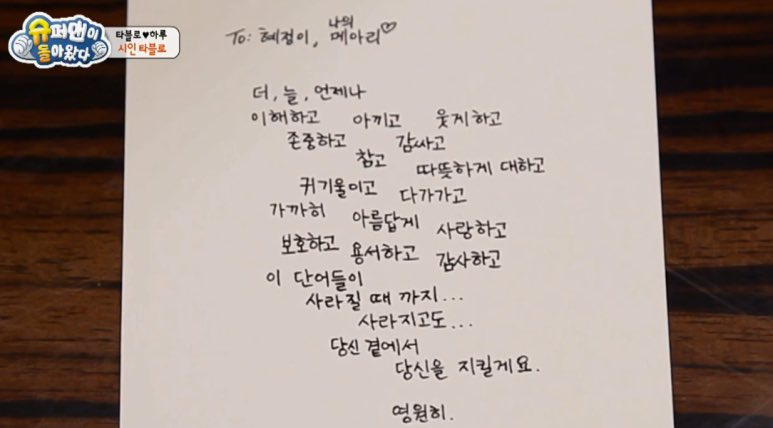 슈퍼맨이
돌아왔다
타블로♥하루
시인 타블로
To: 혜정이, 나의 메아리♡
더, 늘, 언제나
이해하고 아끼고 웃게하고
존중하고 감싸고
참고 따뜻하게 대하고
귀기울이고 다가가고
가까히 아름답게 사랑하고
보호하고 용서하고 감사하고
이 단어들이
사라질 때 까지...
사라지고도...
당신 곁에서
당신을 지킬게요.
영원히.